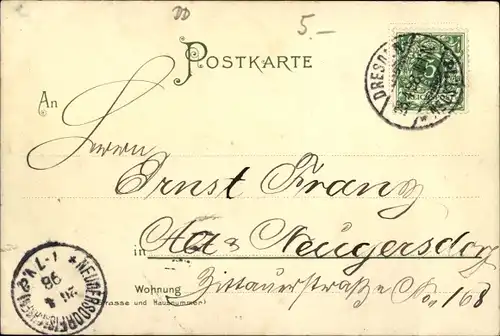 5.-
POSTKARTE
DRESDEN
5
An
Herrn
Ernst Franz
in Neugersdorf
Wohnung Zittauerstraße No. 168
(Strasse und Hausnummer)
NEUGERSDORF
1-7 V.
98